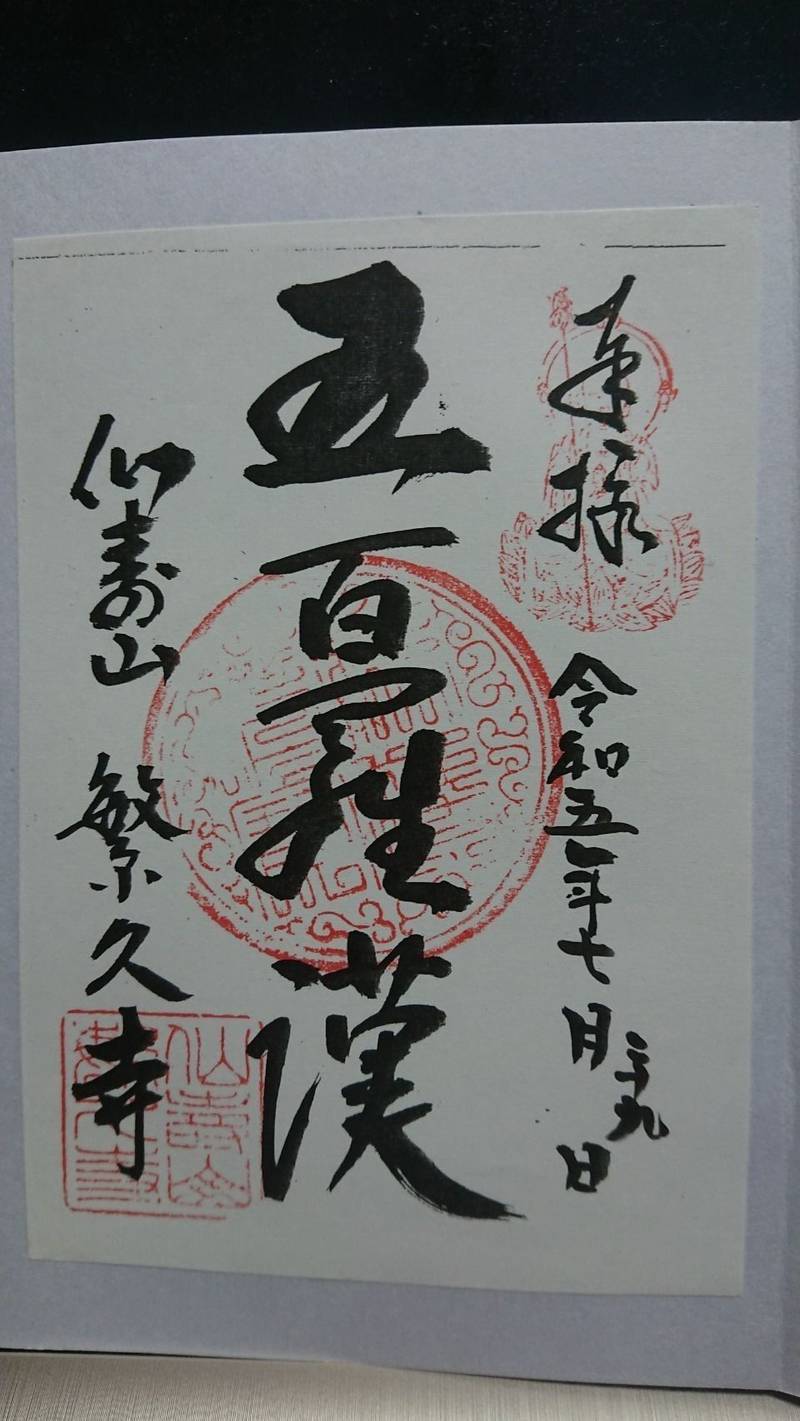 奉拝
令和五年七月二十九日
五百羅漢
仙寿山 繁久寺